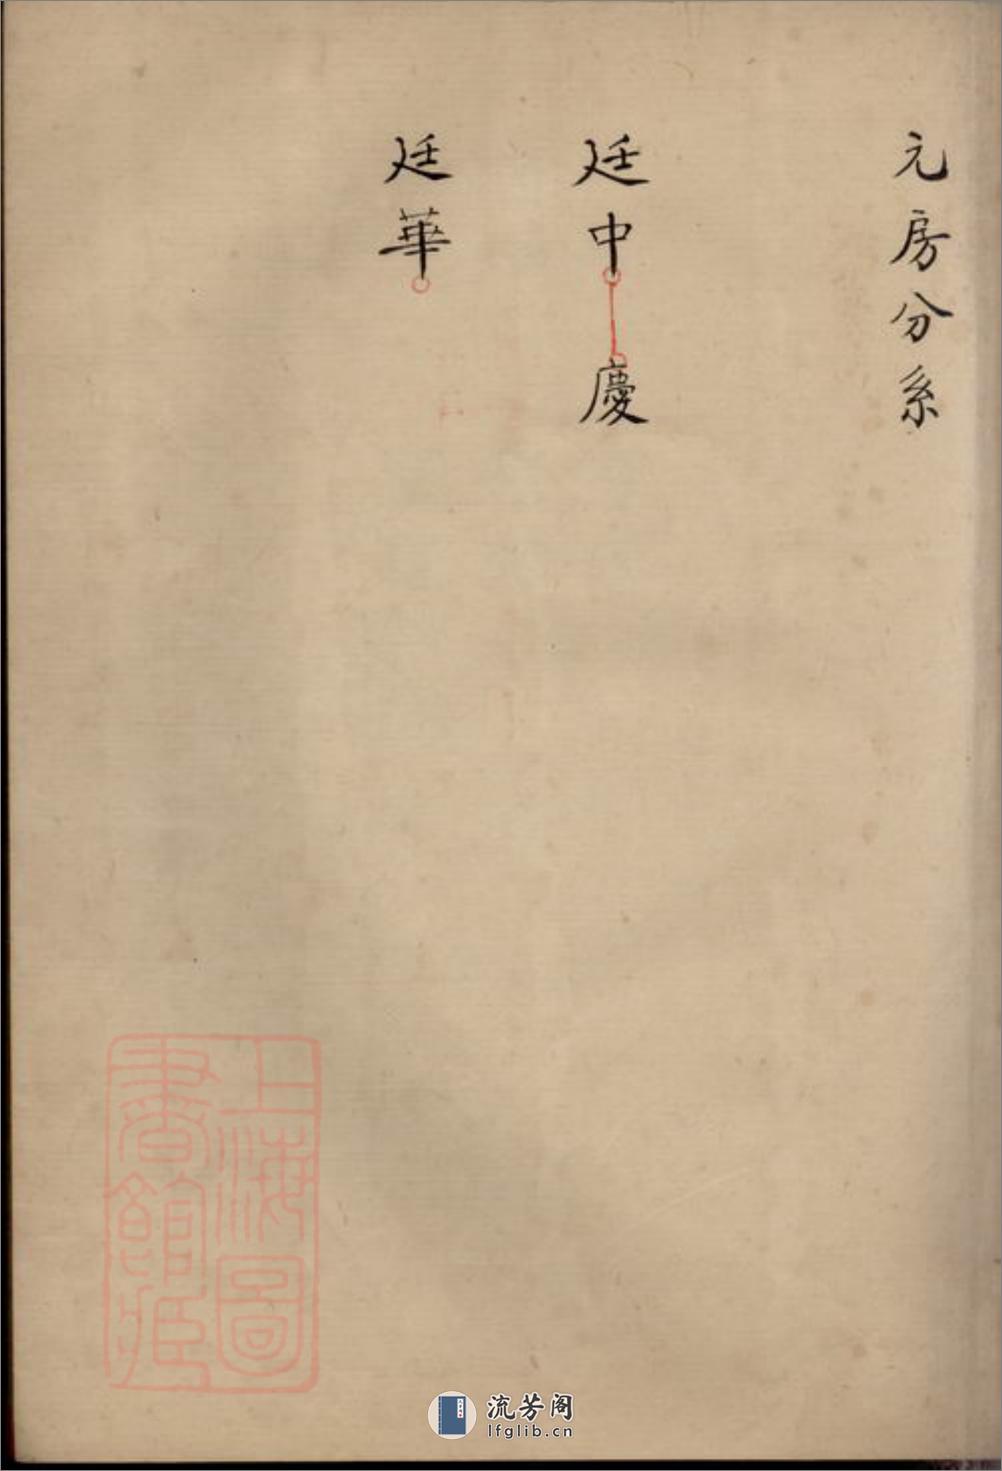 元房分系
廷中慶
廷華
上海圖
書館藏
流芳阁
lfglib.cn